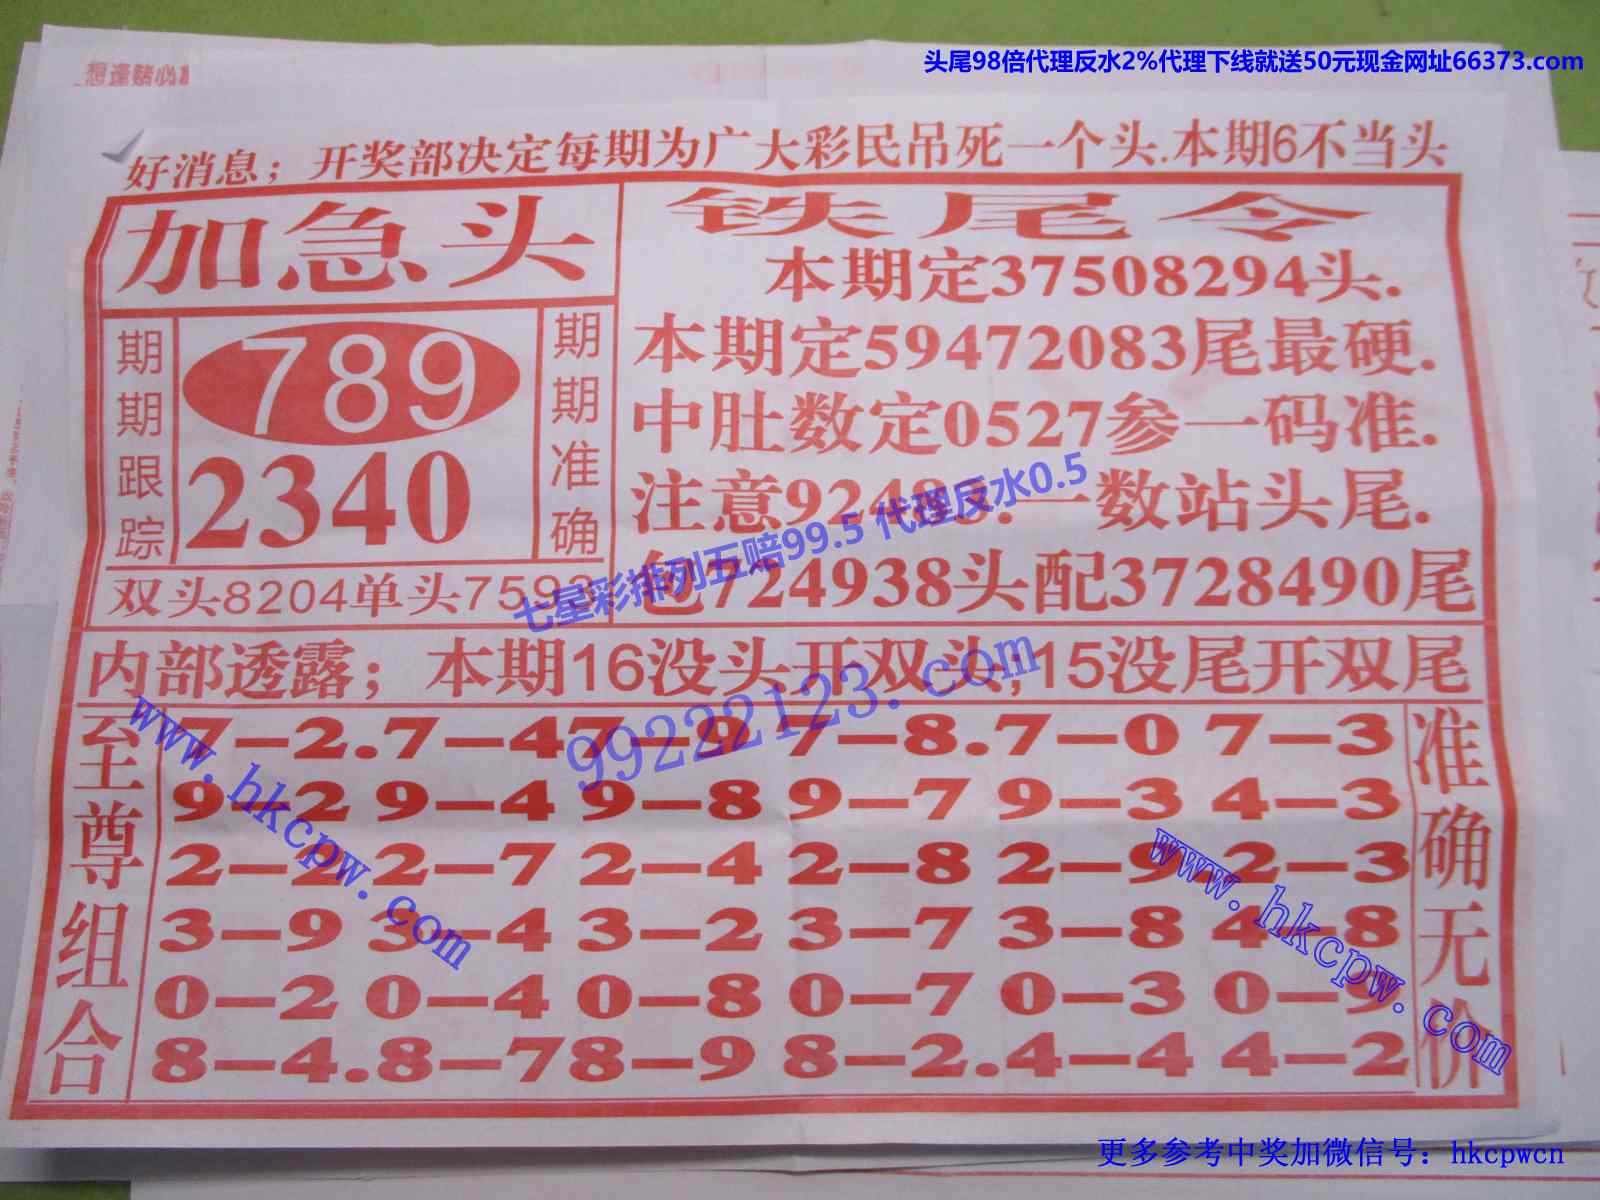 头尾98倍代理反水2%代理下线就送50元现金网址66373.com
好消息；开奖部决定每期为广大彩民吊死一个头.本期6不当头
加急头
期期跟踪
789
2340
期期准确
双头8204单头7593
铁尾令
本期定37508294头.
本期定59472083尾最硬.
中肚数定0527参一码准.
注意92483.一数站头尾.
包724938头配3728490尾
七星彩排列五赔99.5 代理反水0.5
内部透露；本期16没头开双头;15没尾开双尾
99222123.com
至尊组合
7—2.7—47—9 7—8.7—0 7—3
9—2 9—4 9—8 9—7 9—3 4—3
2—2 2—7 2—4 2—8 2—9 2—3
3—9 3—4 3—2 3—7 3—8 4—8
0—2 0—4 0—8 0—7 0—3 0—9
8—4.8—78—9 8—2.4—4 4—2
准确无价
www.hkcpw.com
www.hkcpw.com
更多参考中奖加微信号：hkcpwcn